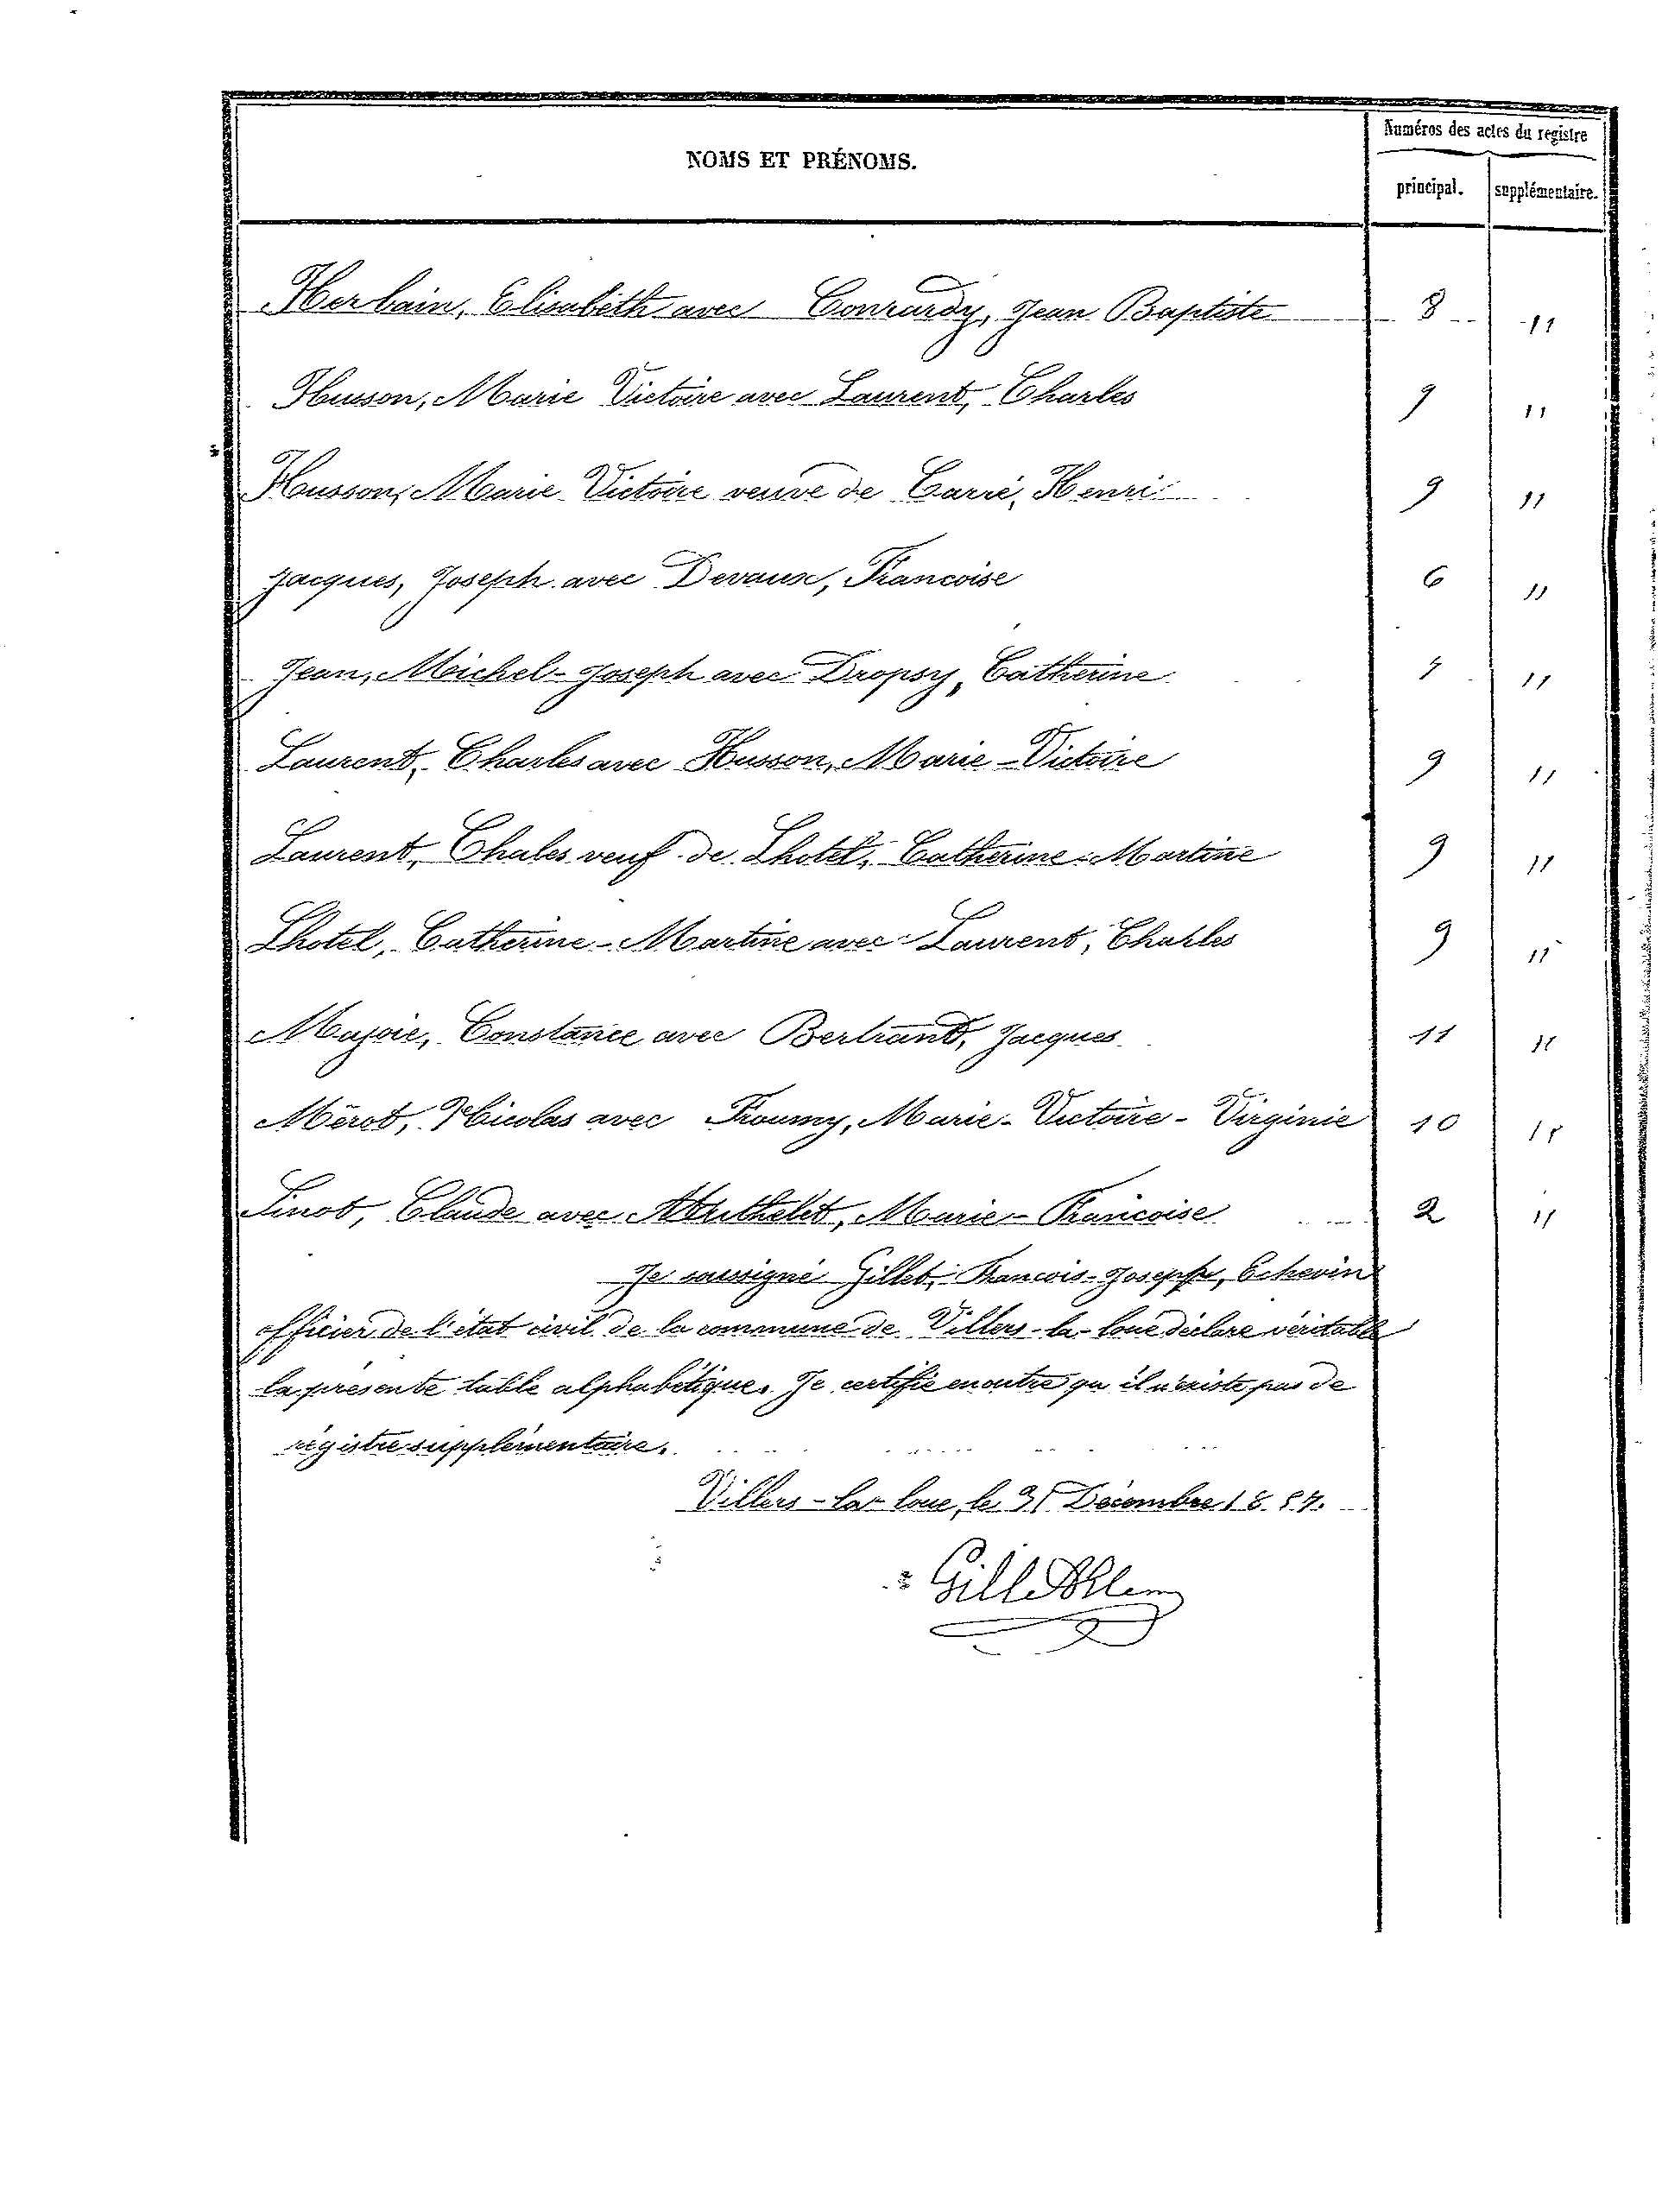 Numéros des actes du registre
NOMS ET PRÉNOMS.
principal. supplémentaire.
Herbain, Elisabéth avec Conrardy, Jean Baptiste 8 "
Husson, Marie Victoire avec Laurent, Charles 9 "
Husson, Marie Victoire veuve de Carré, Henri 9 "
Jacques, Joseph avec Devaux, Francoise 6 "
Jean, Michel-Joseph avec Dropsy, Catherine "
Laurent, Charles avec Husson, Marie-Victoire 9 "
Laurent, Chales veuf de Lhotel, Catherine-Martine 9 "
Lhotel, Catherine-Martine avec Laurent, Charles 9 "
Majoie, Constance avec Bertrand, Jacques 11 "
Mérot, Nicolas avec Froumy, Marie-Victoire-Virginie 10 "
Sinot, Claude avec Marie-Francoise 2 "
Je soussigné Gillet, Francois-Joseph, Echevin
officier de l'état civil de la commune de Villers-la-loue déclare véritable
la présente table alphabétique. Je certifie en outre qu'il n'existe pas de
régistre supplémentaire.
Villers-la-loue, le 31 Décembre 18